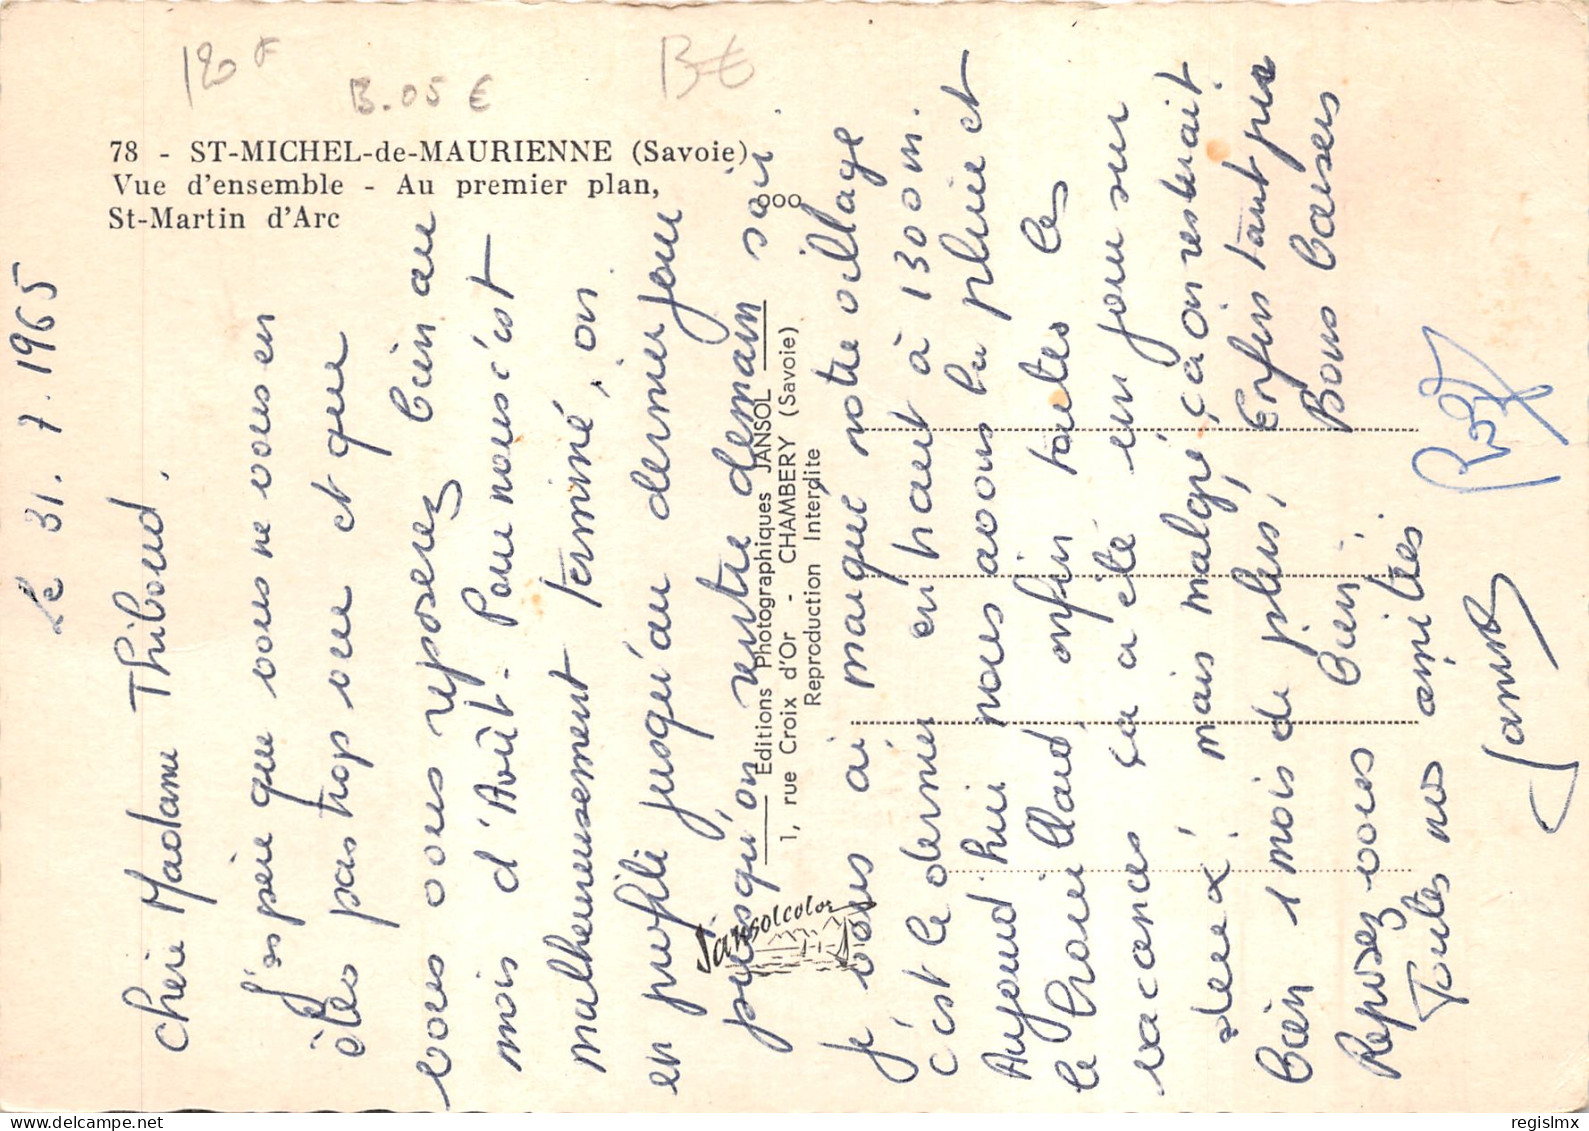 120 F
B.05 €
B€
78 - ST-MICHEL-de-MAURIENNE (Savoie)
Vue d'ensemble - Au premier plan,
St-Martin d'Arc
Le 31.7.1965
Chère Madame Thiboud.
J'espère que vous ne vous en
êtes pas trop vue et que
vous vous reposerez bien au
mois d'Août. Pour nous c'est
malheureusement terminé, on
en profite jusqu'au dernier jour
puisqu'on rentre demain soir.
Je vous ai marqué notre village
c'est le dernier en haut à 1300 m.
Aujourd'hui nous avons la pluie et
le brouillard, enfin toutes les
vacances ça a été un jour sur
deux! mais malgré ça on resterait
bien 1 mois de plus! Enfin tant pis
Reposez vous bien. Bons baisers
Toutes nos amitiés
OOO
Editions Photographiques JANSOL
1, rue Croix d'Or - CHAMBERY (Savoie)
Reproduction Interdite
Jansolcolor
regislmx